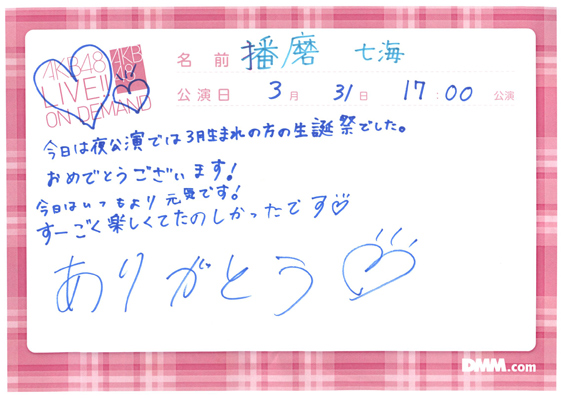 AKB48
LIVE!!
ON DEMAND
AKB
名前 播磨 七海
公演日 3月 31日 17:00 公演
今日は夜公演では3月生まれの方の生誕祭でした。
おめでとうございます!
今日はいつもより元気です!
すーごく楽しくてたのしかったです♡
ありがとう♡
DMM.com